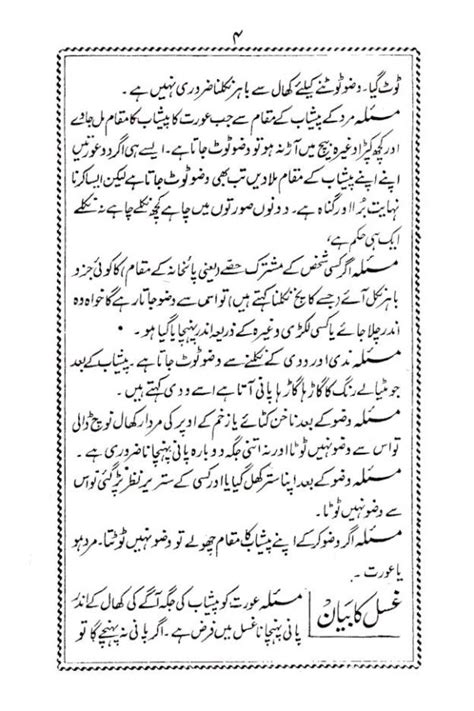 ۴
ٹوٹ گیا۔ وضو ٹوٹنے کیلئے کھال سے باہر نکلنا ضروری نہیں ہے۔
مسئلہ مرد کے پیشاب کے مقام سے جب عورت کا پیشاب کا مقام مل جاوے
اور کچھ کپڑا وغیرہ بیچ میں آڑ نہ ہو تو وضو ٹوٹ جاتا ہے۔ ایسے ہی اگر دو عورتیں
اپنے اپنے پیشاب کے مقام ملا دیں تب بھی وضو ٹوٹ جاتا ہے لیکن ایسا کرنا
نہایت بڑا اور گناہ ہے۔ دونوں صورتوں میں چاہے کچھ نکلے چاہے نہ نکلے
ایک ہی حکم ہے،
مسئلہ اگر کسی شخص کے مشترک حصے (یعنی پائخانہ کے مقام) کا کوئی جزو
باہر نکل آئے (جسے کانچ نکلنا کہتے ہیں) تو اس سے وضو جاتا رہے گا خواہ وہ
اندر چلا جائے یا کسی لکڑی وغیرہ کے ذریعہ اندر پہنچایا گیا ہو۔
مسئلہ مذی اور ودی کے نکلنے سے وضو ٹوٹ جاتا ہے۔ پیشاب کے بعد
جو مٹیالے رنگ کا گاڑھا گاڑھا پانی آتا ہے اسے ودی کہتے ہیں۔
مسئلہ وضو کے بعد ناخن کٹائے یا زخم کے اوپر کی مردار کھال نوچ ڈالی
تو اس سے وضو نہیں ٹوٹا اور نہ اتنی جگہ دوبارہ پانی پہنچانا ضروری ہے۔
مسئلہ وضو کے بعد اپنا ستر کھل گیا یا اور کسی کے ستر پر نظر پڑ گئی تو اس
سے وضو نہیں ٹوٹا۔
مسئلہ اگر وضو کر کے اپنے پیشاب کا مقام چھولے تو وضو نہیں ٹوٹتا۔ مرد ہو
یا عورت۔
غسل کا بیان
مسئلہ عورت کو پیشاب کی جگہ آگے کی کھال کے اندر
پانی پہنچانا غسل میں فرض ہے۔ اگر پانی نہ پہنچے گا تو